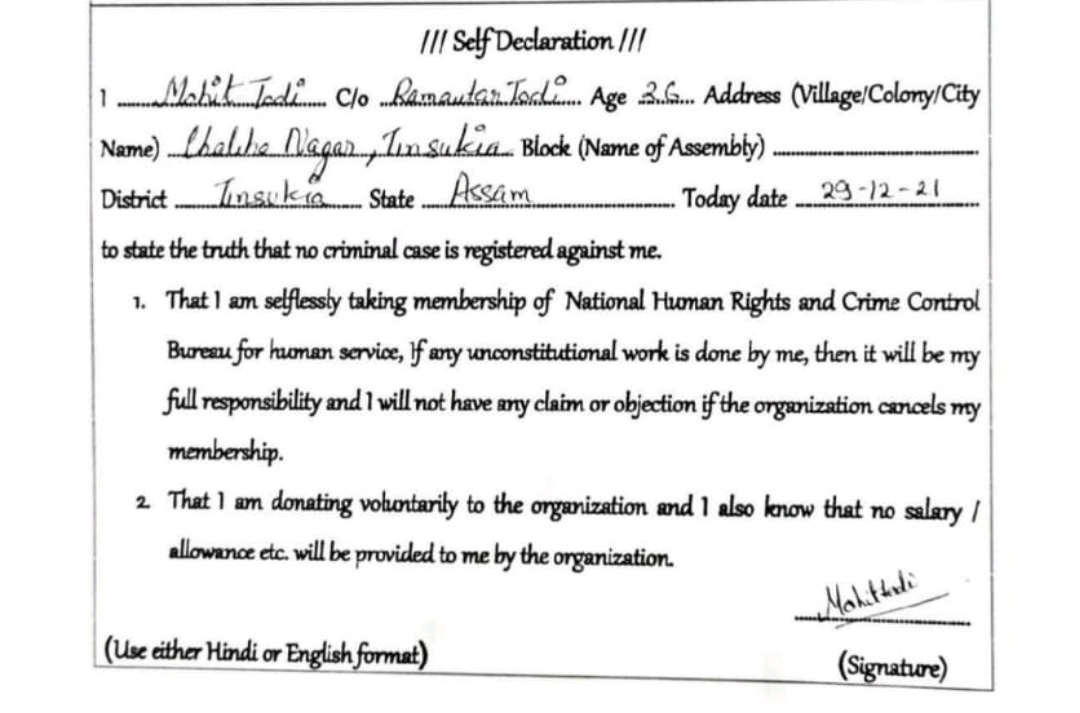 /// Self Declaration ///
I ........Mohit Todi..... C/o ..Ramautar Todi.... Age .36... Address (Village/Colony/City
Name) ..Chaliha Nagar, Tinsukia.. Block (Name of Assembly) ........................................
District ........Tinsukia....... State .....Assam........................ Today date .....29-12-21........
to state the truth that no criminal case is registered against me.
1. That I am selflessly taking membership of National Human Rights and Crime Control
Bureau for human service, if any unconstitutional work is done by me, then it will be my
full responsibility and I will not have any claim or objection if the organization cancels my
membership.
2 That I am donating voluntarily to the organization and I also know that no salary /
allowance etc. will be provided to me by the organization.
Mohit todi
(Use either Hindi or English format)
(Signature)